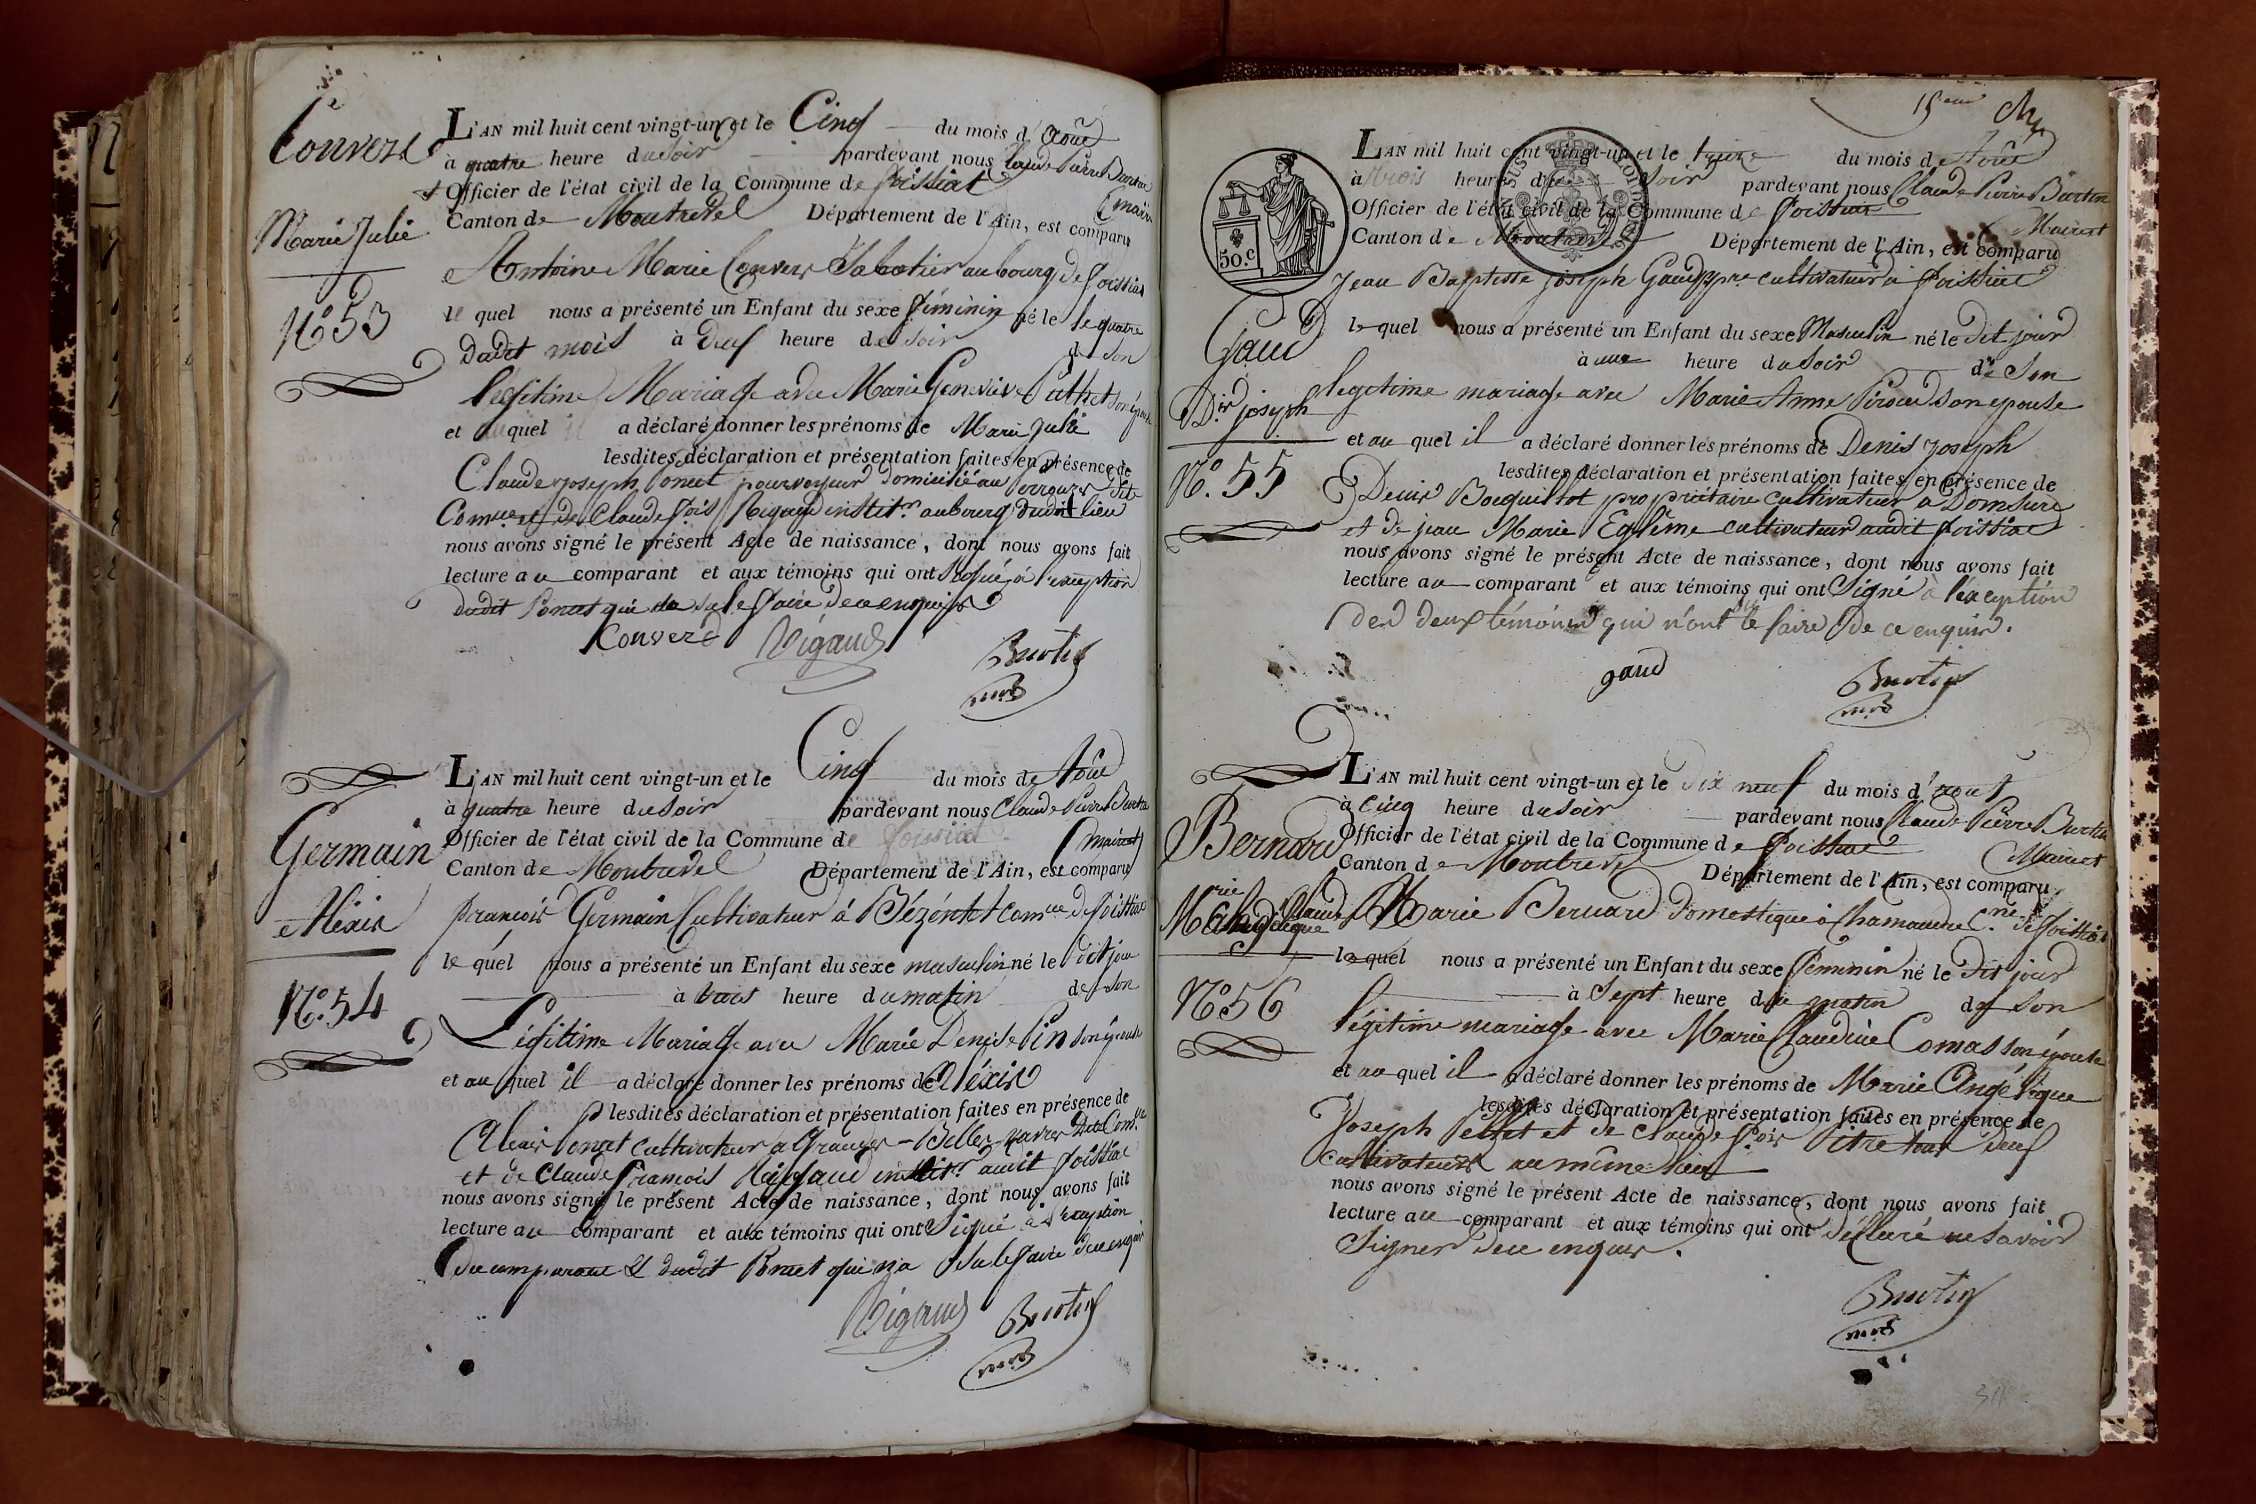 Convers
Marie Julie
N.o 53
L'AN mil huit cent vingt-un et le Cinq du mois d'Aoûst
à quatre heure du soir pardevant nous Claude Pierre Burtin
Officier de l'état civil de la Commune de foissiat maire
Canton de Montrevel Département de l'Ain, est comparu
Antoine Marie Convers Sabotier au bourg de foissiat
le quel nous a présenté un Enfant du sexe féminin né le le quatre
dudit mois à deux heure du soir de son
légitime Mariage avec Marie Genevieve Puthet son épouse
et quel a déclaré donner les prénoms de Marie Julie
lesdites déclaration et présentation faites en présence de
Claude joseph Poncet pourvoyeur domicilié au dite
Com.ne et de Claude f.ois Rigaud instit.r au bourg dudit lieu
nous avons signé le présent Acte de naissance, dont nous avons fait
lecture au comparant et aux témoins qui ont signé à l'exception
dudit Poncet qui n'a su le faire de ce enquis
Convers Rigaud Burtin
Germain
Alexis
N.o 54
L'AN mil huit cent vingt-un et le Cinq du mois de Aôut
à quatre heure du soir pardevant nous Claude Pierre Burtin
Officier de l'état civil de la Commune de foissiat maire
Canton de Montrevel Département de l'Ain, est comparu
françois Germain Cultivateur à Bézentet com.ne de foissiat
le quel nous a présenté un Enfant du sexe masculin né le dit jour
à trois heure du matin de son
Légitime Mariage avec Marie Denise Pin son épouse
et au quel il a déclaré donner les prénoms de Aléxis
lesdites déclaration et présentation faites en présence de
Alexis Poncet cultivateur a Granges-Belles-Navres dite Com.ne
et de Claude françois Rigaud instit.r audit foissiat
nous avons signé le présent Acte de naissance, dont nous avons fait
lecture au comparant et aux témoins qui ont Signé à l'exception
du comparant & dudit Poncet qui n'a su le faire de ce enquis
Rigaud Burtin
15eme
50.c
Gaud
D.is joseph
N.o 55
L'AN mil huit cent vingt-un et le treize du mois de Aôut
à trois heure du soir pardevant nous Claude Pierre Burtin
Officier de l'état civil de la Commune de foissiat Maire
Canton de Montrevel Département de l'Ain, est comparu
Jean Baptiste joseph Gaud p.pre cultivateur à foissiat
le quel nous a présenté un Enfant du sexe Masculin né le dit jour
à une heure du soir de Son
legitime mariage avec Marie Anne Piroud son epouse
et au quel il a déclaré donner les prénoms de Denis joseph
lesdites déclaration et présentation faites en présence de
Denis Bocquillot propriétaire cultivateur a Domsure
et de jean Marie Egléme cultivateur audit foissiat
nous avons signé le présent Acte de naissance, dont nous avons fait
lecture au comparant et aux témoins qui ont Signé à l'exception
des deux témoins qui n'ont su le faire de ce enquis.
gaud Burtin
Bernard
M.rie Angélique
N.o 56
L'AN mil huit cent vingt-un et le dix neuf du mois d'août
à cinq heure du soir pardevant nous Claude Pierre Burtin
Officier de l'état civil de la Commune de foissiat Maire
Canton de Montrevel Département de l'Ain, est comparu
Claude Marie Bernard domestique à Chamandre C.ne de foissiat
le quel nous a présenté un Enfant du sexe féminin né le dit jour
à Sept heure du matin de son
légitime mariage avec Marie Claudine Comas son épouse
et au quel il a déclaré donner les prénoms de Marie Angélique
lesdites déclaration et présentation faites en présence de
Joseph Pellet et de Claude f.ois Pitre tous deux
cultivateurs au même lieu
nous avons signé le présent Acte de naissance, dont nous avons fait
lecture au comparant et aux témoins qui ont déclaré ne savoir
signer de ce enquis.
Burtin